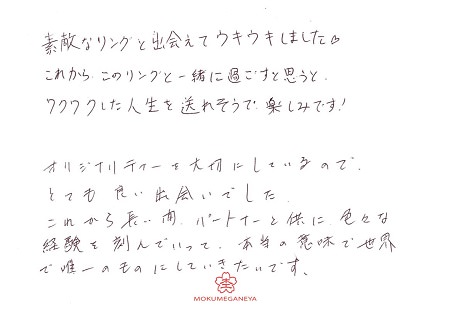 素敵なリングと出会えてウキウキしました♡
これから、このリングと一緒に過ごすと思うと、
ワクワクした人生を送れそうで、楽しみです!
オリジナリティーを大切にしているので、
とても良い出会いでした。
これから長い間、パートナーと供に、色々な
経験を刻んでいって、本当の意味で世界
で唯一のものにしていきたいです。
MOKUMEGANEYA